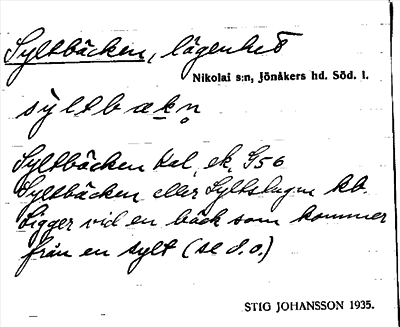 Syltbäcken, lägenhet
Nikolai s:n, Jönåkers hd. Söd. l.
syltbækn̥
Syltbäcken Kal, ek, G56
Syltbäcken eller Syltstugan kb.
Ligger vid en bäck som kommer
från en sylt (se d.o.)
STIG JOHANSSON 1935.